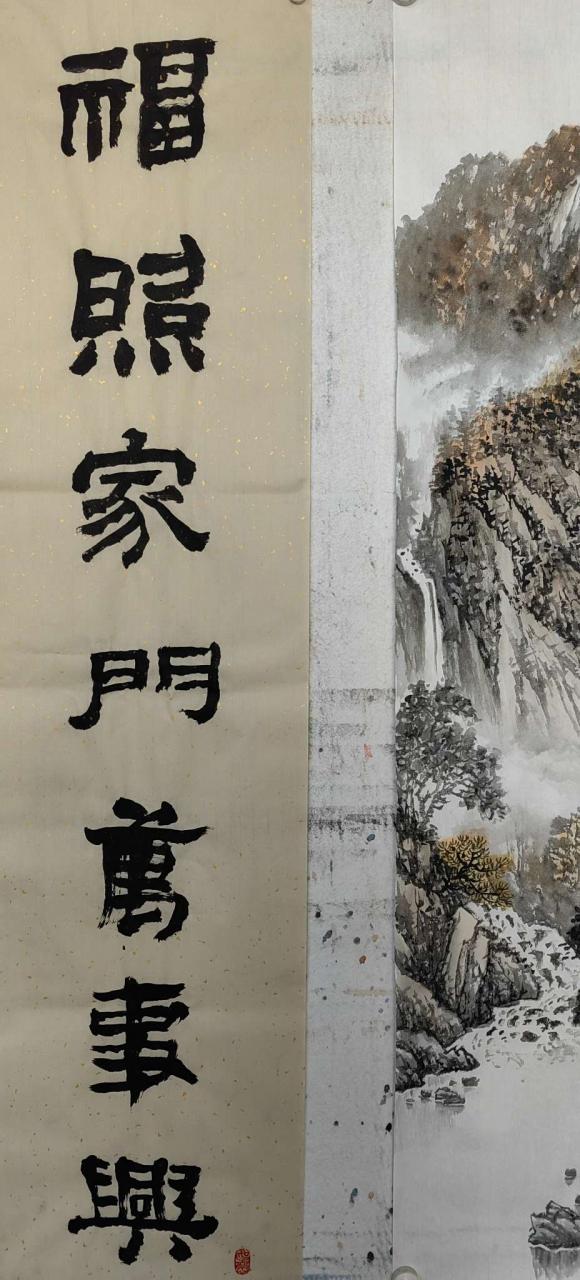 福照家門萬事興